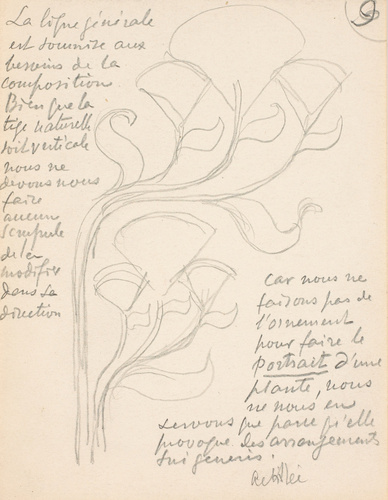 9
La ligne générale
est soumise aux
besoins de la
composition.
Bien que la
tige naturelle
soit verticale
nous ne
devons nous
faire
aucun
scrupule
de la
modifier
dans sa
direction
car nous ne
faisons pas de
l'ornement
pour faire le
portrait d'une
plante, nous
ne nous en
servons que parce qu'elle
provoque des arrangements
sui generis.